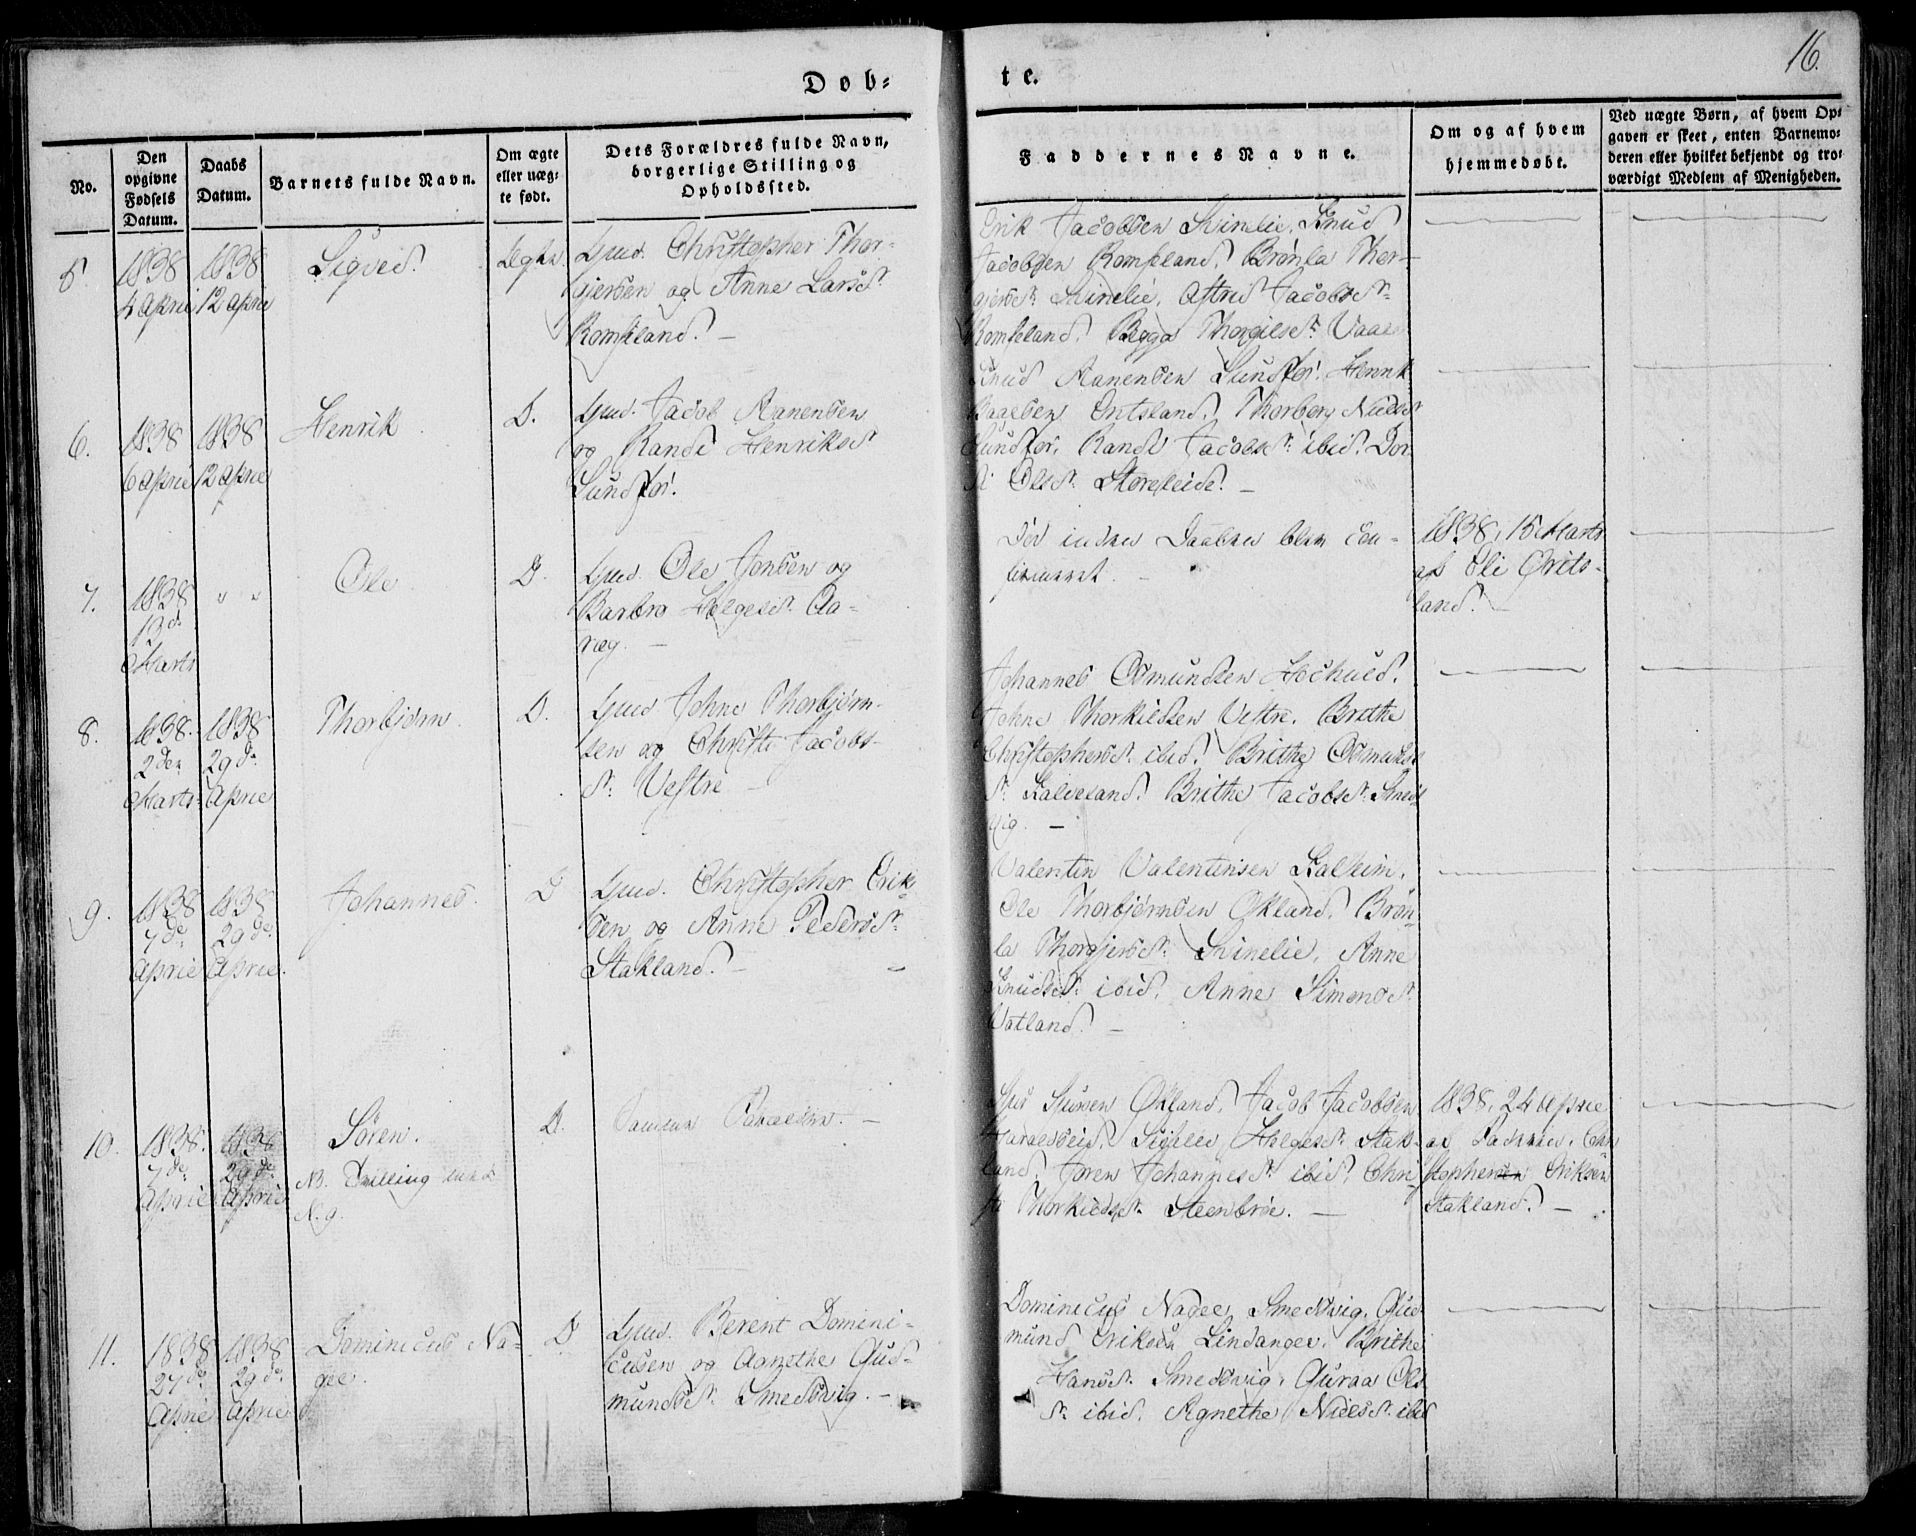 16.
Døb=
te.
No.
Den opgivne Fødsels Datum.
Daabs Datum.
Barnets fulde Navn.
Om ægte eller uægte født.
Dets Forældres fulde Navn, borgerlige Stilling og Opholdssted.
Faddernes Navne.
Om og af hvem hjemmedøbt.
Ved uægte Børn, af hvem Opgaven er skeet, enten Barnemoderen eller hvilket bekjendt og troværdigt Medlem af Menigheden.
5.
1838
4 April
1838
12 April
Sigved.
Christopher Thor-
giersen og Anne Larsd.
Romseland. –
Erik Jacobsen Svinelie, Knud
Jacobsen Romseland, Brønla Thor-
giersd. Svinelie, Astrid Jacobsd.
Romseland, Thorgilsd.
6.
1838
6 April
1838
12 April
Henrik.
D.
Jacob Aanensen
og Randi Henriksd.
Sundfør.
Knud Aanensen Sundfør, Henrik
Thorberg Nielsd.
Sundfør, Randi Jacobsd. ibid.
Olsd. –
7.
1838
13 de
Marts
" "
Ole
D.
Ole Jonsen og
Barbro Helgesd. Aa-
–
Død inden Daaben blev con-
firmeret. –
1838, 15 Marts
af Eli
land. –
8.
1838.
2den
Marts
1838
29 de
April
Thorbjørn.
D.
Johne Thorbjørn-
sen og Christi Jacobs-
d. Vestre –
Johannes Osmundsen
Johne Thorkildsen Vestre, Brithe
Christophersd. ibid. Brithe Osmunds-
d. Brithe Jacobsd. Smeds-
vig. –
9.
1838
7 de
April
1838
29 de
April.
Johannes.
D
Christopher Erik-
sen og Anne Pedersd.
Stakland. –
Valentin Valentinsen
Ole Thorbjørnsen Økland, Brøn-
la Thorgiersd. Svinelie, Anne
Knudsd. ibid, Anne Simonsd.
Vatland. –
10.
1838.
7 de
April
1838
29 de
April
Søren.
NB. Tvilling med
N. 9.
D.
Samme Forældre. –
Økland, Jacob Jacobsen
Helgesd. Stak-
land, Johannesd. ibid, Chri-
sti Thorkildsd. Steenbrøe. –
1838, 24 April
af Faderen, Chri-
stopher Eriksen
Stakland. –
11.
1838
27 de
April
1838
29 de
April
Dominicus Na-
gel.
D
Berent Domini-
cusen og Agnethe Gud-
mundsd. Smedsvig. –
Dominicus Nagel, Smedsvig, Gud-
mund Eriksen Lindanger, Brithe
Hansd. Smedsvig, Guraa Ols-
d. ibid. Agnethe Nielsd. ibid